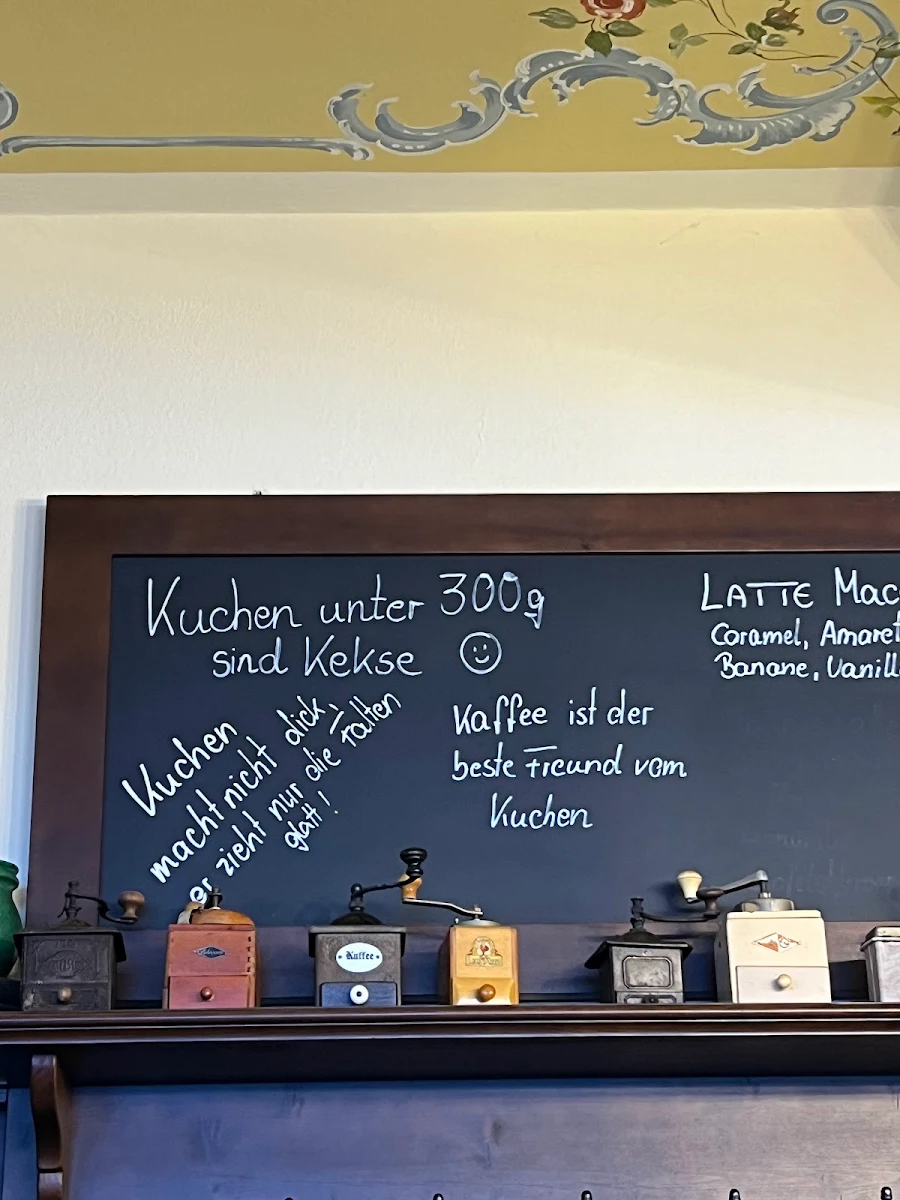 Kuchen unter 300g
sind Kekse
Kuchen
macht nicht dick,
er zieht nur die Falten
glatt!
Kaffee ist der
beste Freund vom
Kuchen
LATTE Mac
Caramel, Amaret
Banane, Vanill
Kaffee